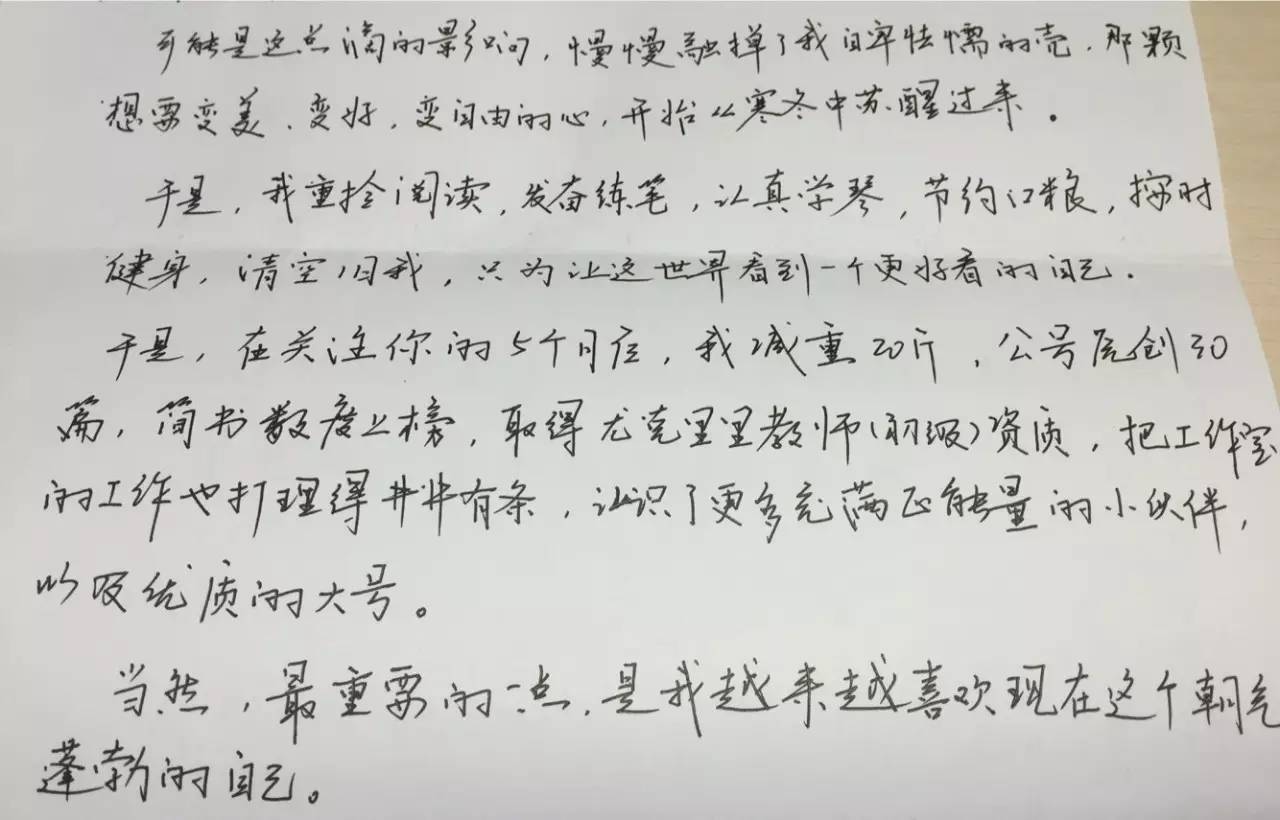 可能是这点滴的影响，慢慢融掉了我自卑怯懦的壳，那颗
想要变美、变好，变自由的心，开始从寒冬中苏醒过来。
于是，我重拾阅读，发奋练笔，认真学琴，节约口粮，按时
健身，清空旧我，只为让这世界看到一个更好看的自己。
于是，在关注你的5个月后，我减重20斤，公号原创30
篇，简书数度上榜，取得尤克里里教师(初级)资质，把工作室
的工作也打理得井井有条，认识了更多充满正能量的小伙伴，
以及优质的大号。
当然，最重要的一点，是我越来越喜欢现在这个朝气
蓬勃的自己。